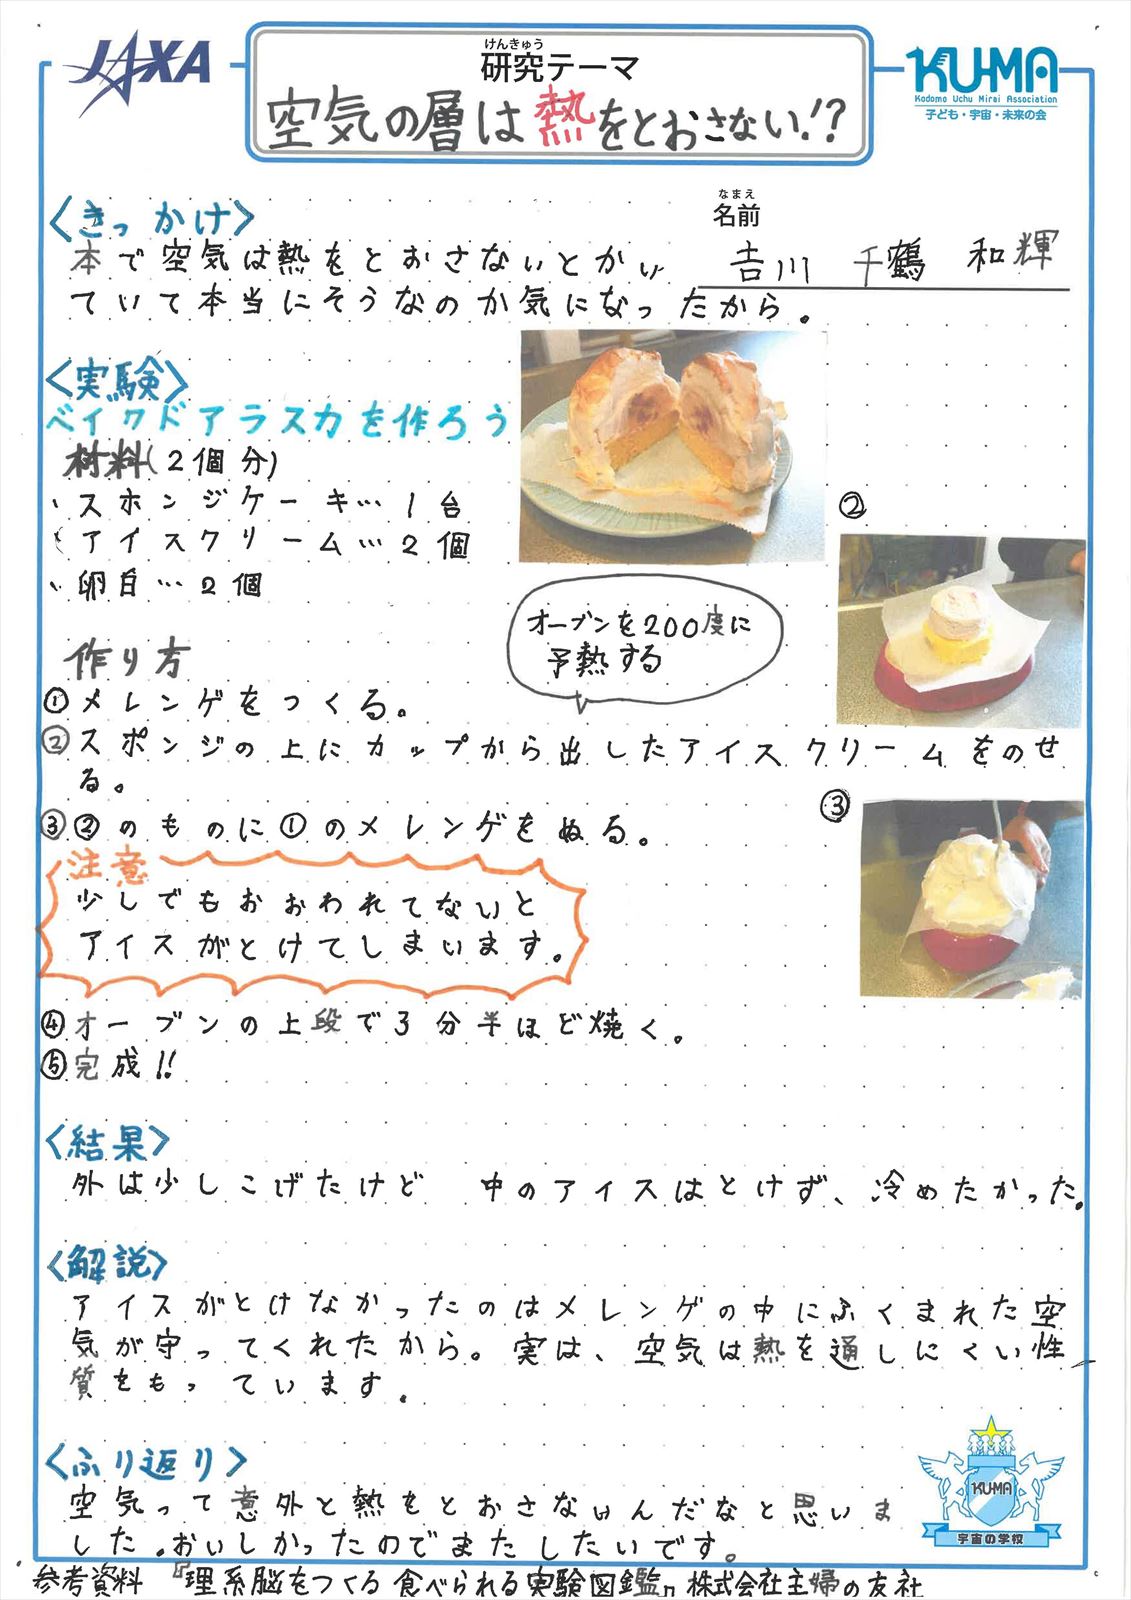 JAXA
けんきゅう
研究テーマ
空気の層は熱をとおさない!?
KU-MA
Kodomo Uchu Mirai Association
子ども・宇宙・未来の会
なまえ
名前
吉川 千鶴 和輝
〈きっかけ〉
本で空気は熱をとおさないとかい
ていて本当にそうなのか気になったから。
〈実験〉
ベイクドアラスカを作ろう
材料(2個分)
、スポンジケーキ…1台
、アイスクリーム…2個
、卵白…2個
オーブンを200度に
予熱する
作り方
①メレンゲをつくる。
②スポンジの上にカップから出したアイスクリームをのせ
る。
②
③②のものに①のメレンゲをぬる。
③
注意
少しでもおおわれてないと
アイスがとけてしまいます。
④オーブンの上段で3分半ほど焼く。
⑤完成!!
〈結果〉
外は少しこげたけど 中のアイスはとけず、冷めたかった。
〈解説〉
アイスがとけなかったのはメレンゲの中にふくまれた空
気が守ってくれたから。実は、空気は熱を通しにくい性
質をもっています。
〈ふり返り〉
空気って意外と熱をとおさないんだなと思いま
した。おいしかったのでまたしたいです。
KU-MA
宇宙の学校
参考資料 『理系脳をつくる食べられる実験図鑑』株式会社主婦の友社